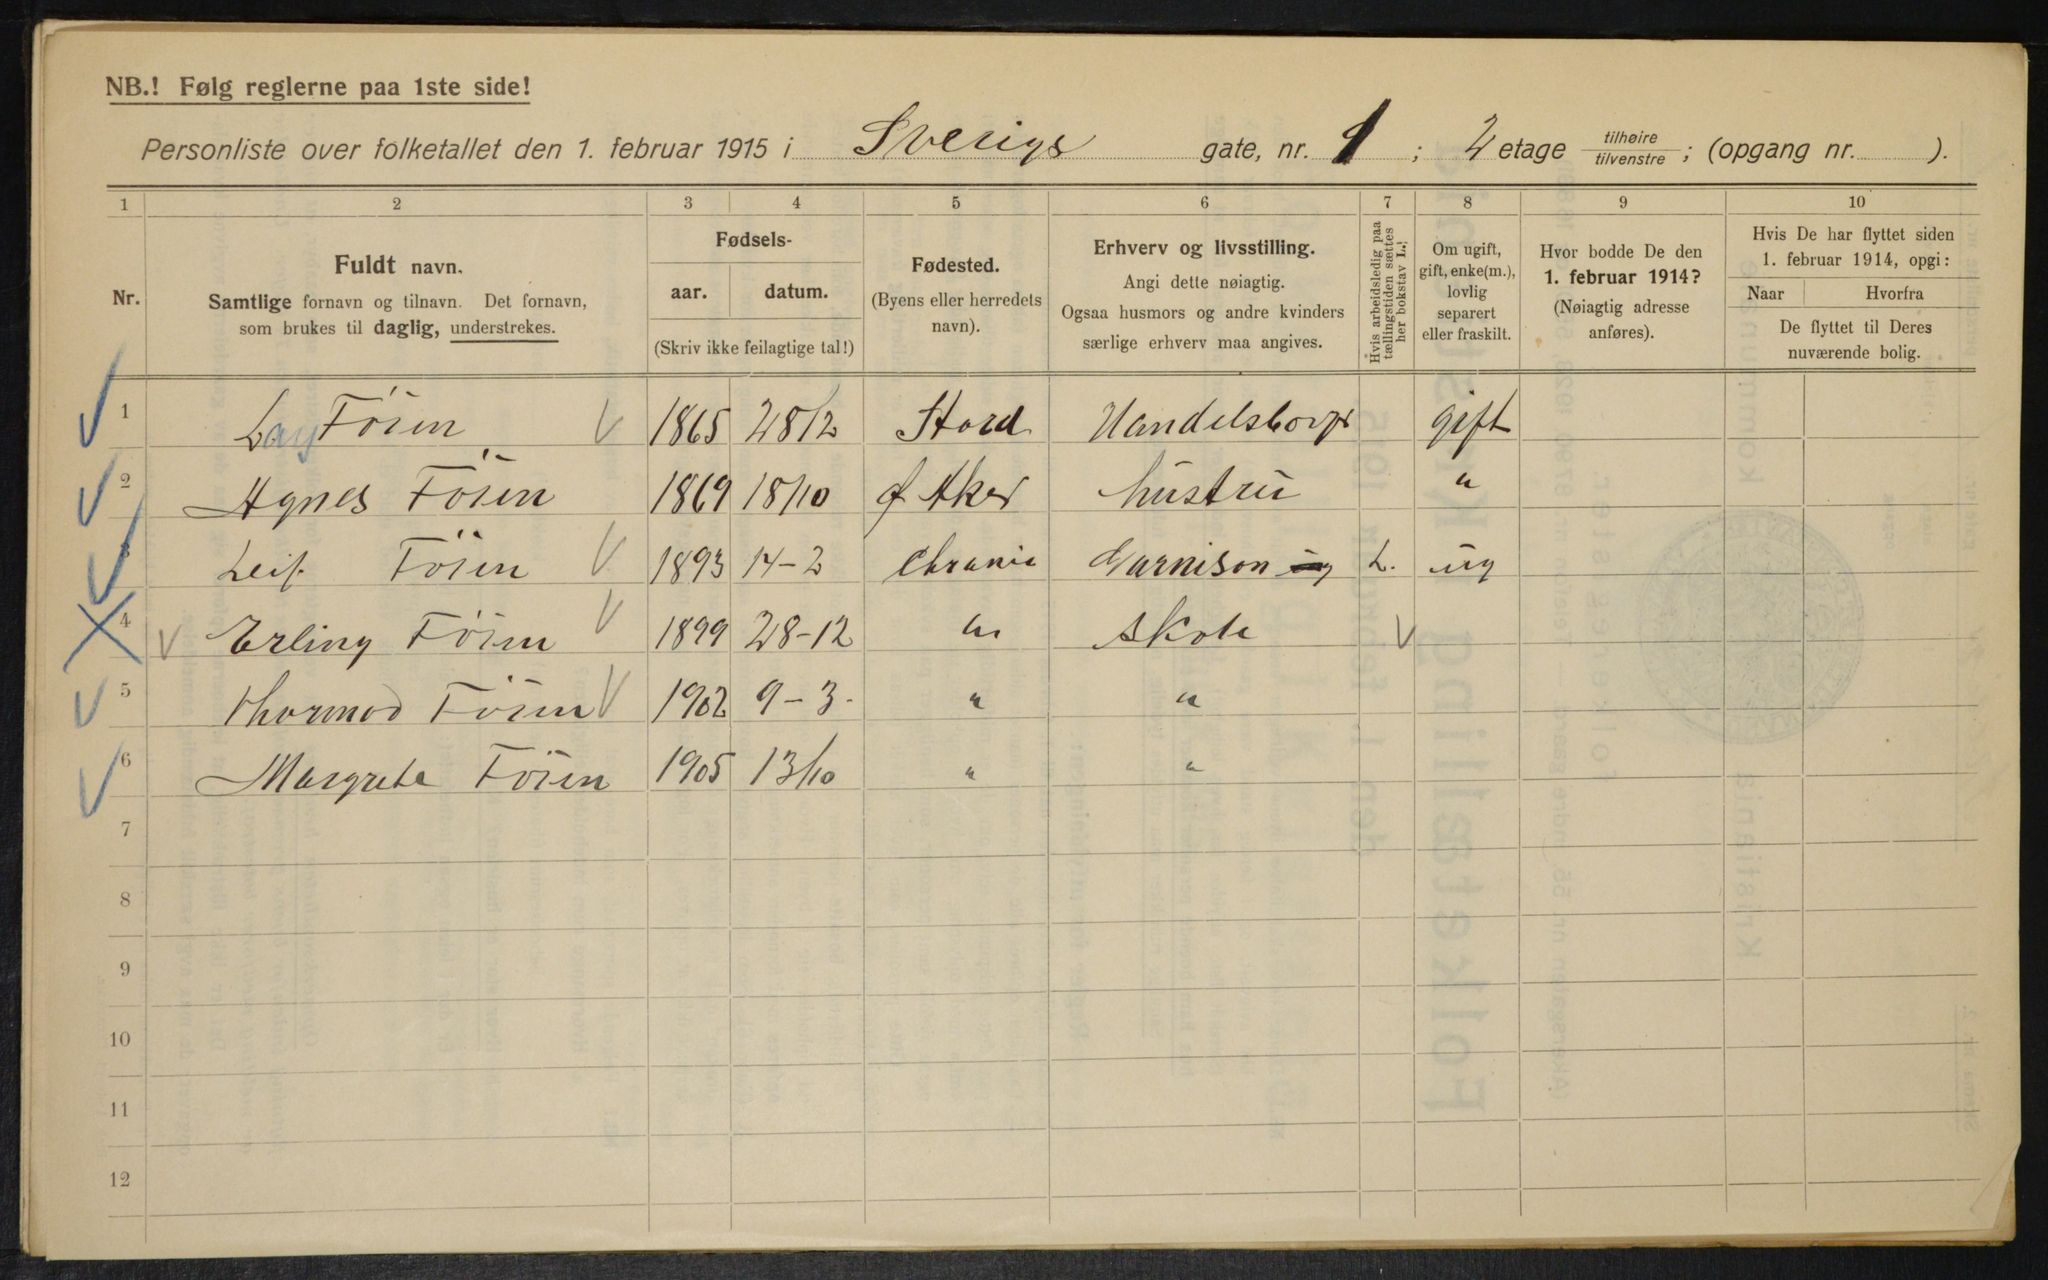 NB.! Følg reglerne paa 1ste side!
Personliste over folketallet den 1. februar 1915 i Sverigs gate, nr. 1 ; 2 etage tilhøire/tilvenstre ; (opgang nr. ).
1 2 3 4 5 6 7 8 9 10
Nr.
Fuldt navn.
Samtlige fornavn og tilnavn. Det fornavn,
som brukes til daglig, understrekes.
Fødsels-
aar. datum.
(Skriv ikke feilagtige tal!)
Fødested.
(Byens eller herredets
navn).
Erhverv og livsstilling.
Angi dette nøiagtig.
Ogsaa husmors og andre kvinders
særlige erhverv maa angives.
Hvis arbeidsledig paa
tællingstiden sættes
her bokstav L.!
Om ugift,
gift, enke(m.),
lovlig
separert
eller fraskilt.
Hvor bodde De den
1. februar 1914?
(Nøiagtig adresse
anføres).
Hvis De har flyttet siden
1. februar 1914, opgi:
Naar Hvorfra
De flyttet til Deres
nuværende bolig.
1 Föien 1865 28/12 Stord gift
2 Agnes Föien 1869 18/10 Ø Aker hustru "
3 Leif Föien 1893 14-2 Chrania Garnison L. ug
4 Erling Föien 1899 28-12 " Skole
5 Thormod Föien 1902 9-3. " "
6 Margrete Föien 1905 13/10 " "
7
8
9
10
11
12